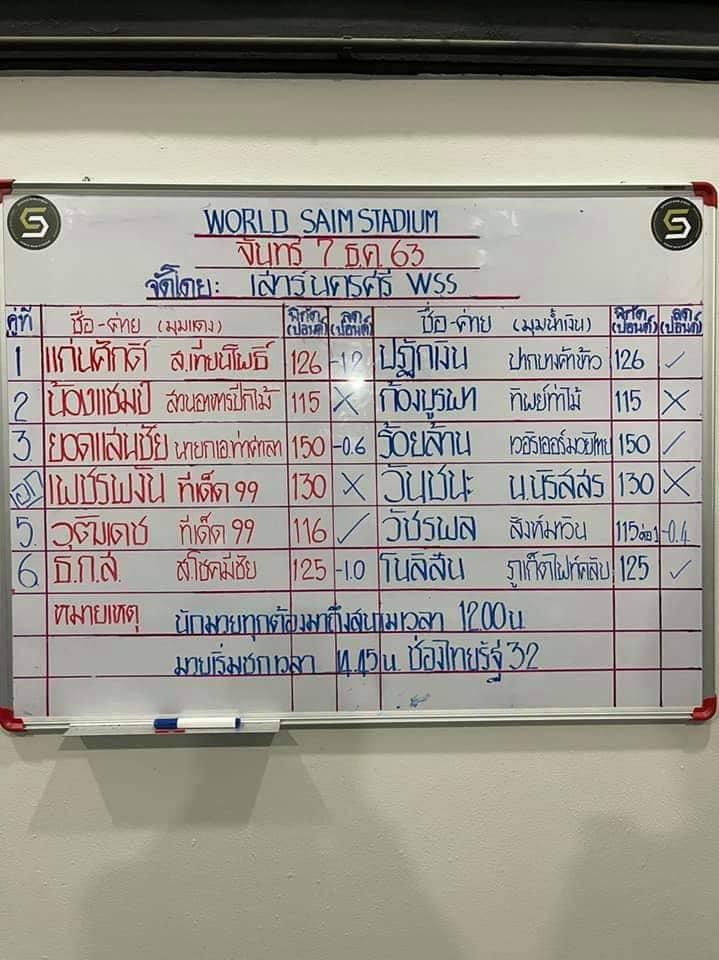 WORLD SAIM STADIUM
จันทร์ 7 ธ.ค. 63
จัดโดย: เสาร์นครศรี WSS
คู่ที่ ชื่อ-ค่าย (มุมแดง) พิกัด (ปอนด์) ลด (ปอนด์) ชื่อ-ค่าย (มุมน้ำเงิน) พิกัด (ปอนด์) ลด (ปอนด์)
1 แก่นศักดิ์ ส.เทียนโพธิ์ 126 -1.2 ปฏักเงิน ปากบางค้าข้าว 126 ✓
2 น้องแชมป์ สวนอาหารปีกไม้ 115 X ก้องบูรพา ทิพย์ท่าไม้ 115 X
3. ยอดแสนชัย นายกเอท่าศาลา 150 -0.6 ร้อยล้าน เวอริเออร์มวยไทย 150 ✓
เอก เพชรพงัน ทีเด็ด 99 130 X วันชนะ น.นริสสร 130 X
5. วุฒิเดช ทีเด็ด 99 116 ✓ วัชรพล สิงห์มาวิน 115 ต่อ 1 -0.4
6. ธ.ก.ส. ส.โชคมีชัย 125 -1.0 โนลิสัน ภูเก็ตไฟท์คลับ 125 ✓
หมายเหตุ นักมวยทุกต้องมาถึงสนามเวลา 12.00 น.
มวยเริ่มชกเวลา 14.45 น. ช่องไทยรัฐ 32